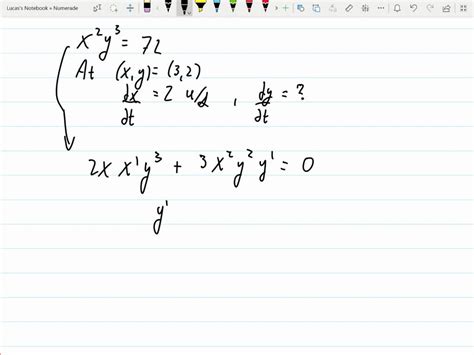 Lucas's Notebook » Numerade
x²y³ = 72
At (x,y) = (3,2)
dx/dt = 2 u/s , dy/dt = ?
2x x' y³ + 3x²y²y' = 0
y'